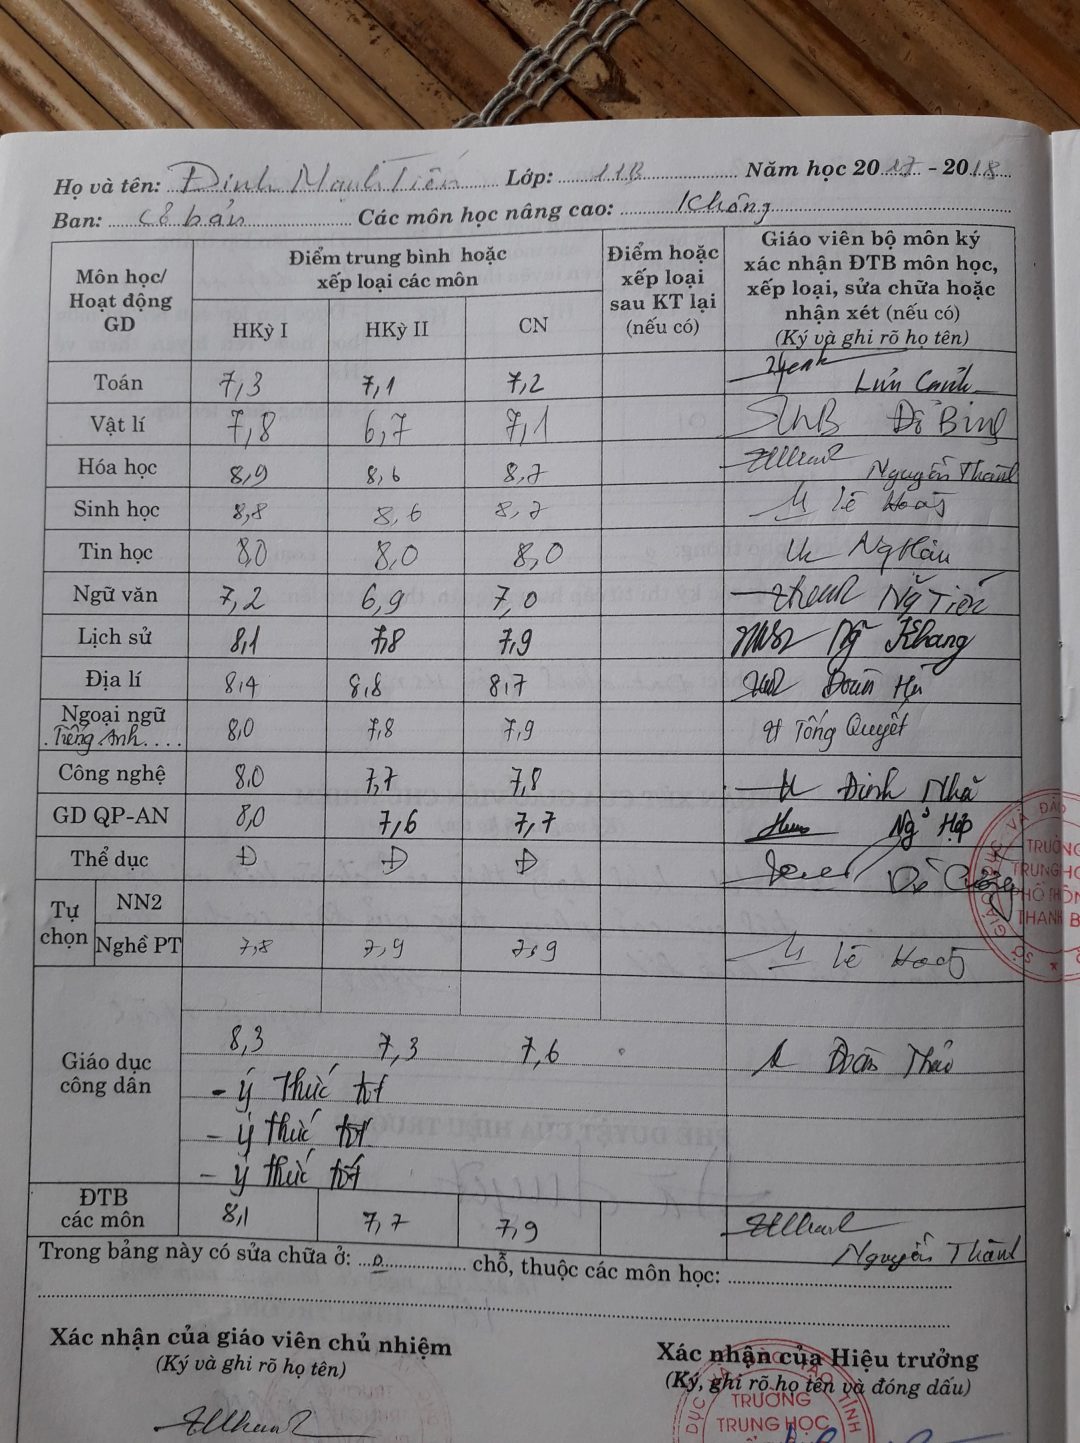 Họ và tên: Đinh Mạnh Tiến Lớp: 11B Năm học 2017 - 2018
Ban: Cơ bản Các môn học nâng cao: Không
Môn học/ Hoạt động GD
Điểm trung bình hoặc xếp loại các môn
HKỳ I HKỳ II CN
Điểm hoặc xếp loại sau KT lại (nếu có)
Giáo viên bộ môn ký xác nhận ĐTB môn học, xếp loại, sửa chữa hoặc nhận xét (nếu có) (Ký và ghi rõ họ tên)
Toán 7,3 7,1 7,2
Vật lí 7,8 6,7 7,1 Đỗ Bình
Hóa học 8,9 8,6 8,7 Nguyễn Thành
Sinh học 8,8 8,6 8,7 Lê
Tin học 8,0 8,0 8,0
Ngữ văn 7,2 6,9 7,0 Ng Tiến
Lịch sử 8,1 7,8 7,9 Ng Khang
Địa lí 8,4 8,8 8,7 Đoàn
Ngoại ngữ
Tiếng Anh 8,0 7,8 7,9 Tống Quyết
Công nghệ 8,0 7,7 7,8 Đinh Nhã
GD QP-AN 8,0 7,6 7,7
Thể dục Đ Đ Đ Cường
Tự chọn
NN2
Nghề PT 7,8 7,9 7,9 Lê
Giáo dục công dân
8,3 7,3 7,6 Đoàn Thảo
- ý thức tốt
- ý thức tốt
- ý thức tốt
ĐTB các môn 8,1 7,7 7,9 Nguyễn Thành
Trong bảng này có sửa chữa ở: 0 chỗ, thuộc các môn học:
Xác nhận của giáo viên chủ nhiệm
(Ký và ghi rõ họ tên)
Xác nhận của Hiệu trưởng
(Ký, ghi rõ họ tên và đóng dấu)
TRƯỜNG
TRUNG HỌC